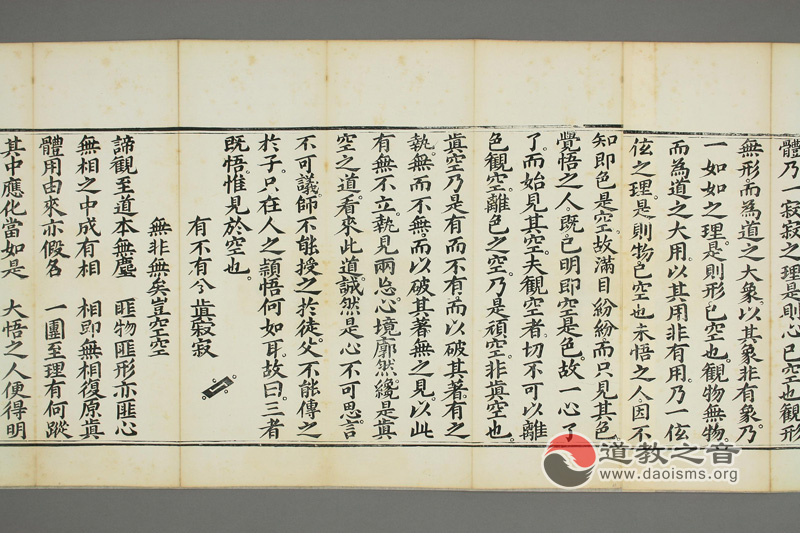 體乃一寂寂之理是則心已空也觀形
無形而為道之大象以其象非有象乃
一如如之理是則形已空也觀物無物
而為道之大用以其用非有用乃一伭
伭之理是則物已空也未悟之人因不
知即色是空故滿目紛紛而只見其色
覺悟之人既已明即空是色故一心了
了而始見其空夫觀空者切不可以離
色觀空離色之空乃是頑空非眞空也
眞空乃是有而不有而以破其著有之
執無而不無而以破其著無之見以此
有無不立執見兩忘心境廓然纔是真
空之道看來此道誠然是心不可思言
不可議師不能授之於徒父不能傳之
於子只在人之頴悟何如耳故曰三者
既悟惟見於空也
有不有兮眞寂寂
無非無矣豈空空
諦觀至道本無塵 匪物匪形亦匪心
無相之中成有相 相即無相復原眞
體用由來亦假名 一團至理有何蹤
其中應化當如是 大悟之人便得明
道教之音
www.daoisms.org